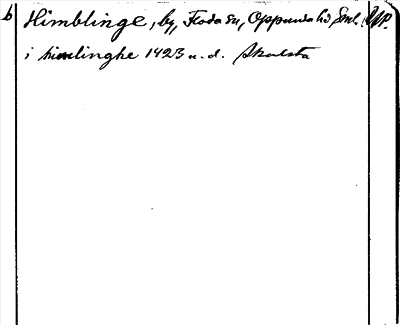 b Himblinge, by, Floda sn, Oppunda hd, Sml. Upp.
i himlinghe 1423 u. d. Skalsta